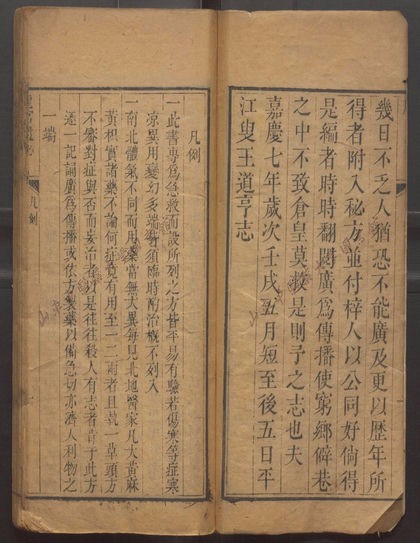 幾日不乏人猶恐不能廣及更以歷年所
得者附入秘方並付梓人以公同好倘得
是編者時時翻閱廣為傳播使窮鄉僻巷
之中不致倉皇莫救是則予之志也夫
嘉慶七年歲次壬戌五月短至後五日平
江叟王道亨志
凡例
一此書專為急救而設所列之方皆平易有驗若傷寒等症寒
涼異用變幻多端須臨時酌治概不列入
一南北體氣不同而用藥當無大異每見北地醫家凡大黃麻
黃枳實諸藥不論何症竟有用至一二兩者且執一草頭方
不審對症與否而妄治者以是往往殺人有志者尚于此方
逐一記誦廣為傳播或依方製藥以備急切亦濟人利物之
一端
凡例